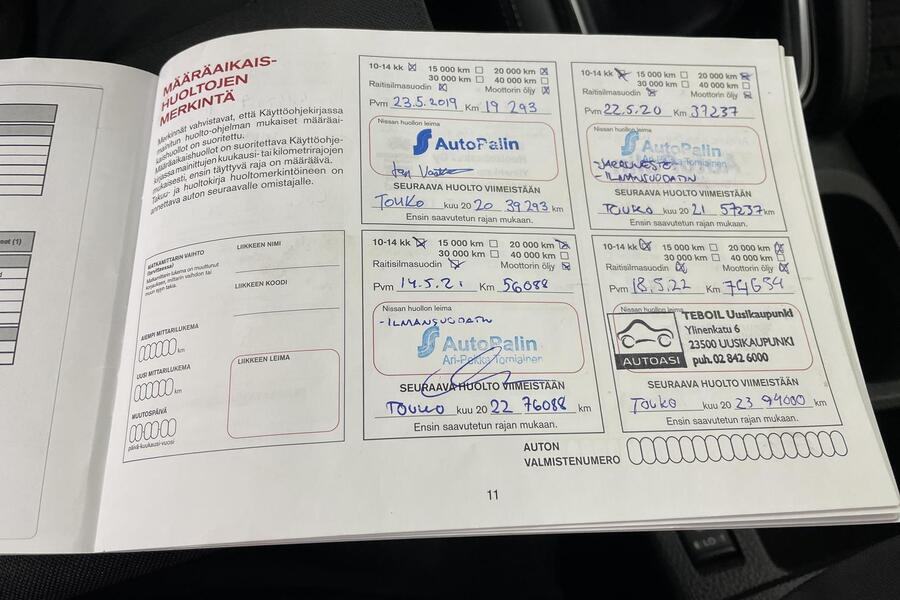 MÄÄRÄAIKAIS-
HUOLTOJEN
MERKINTÄ
Merkinnät vahvistavat, että Käyttöohjekirjassa
mainitun huolto-ohjelman mukaiset määräai-
kaishuollot on suoritettu.
Määräaikaishuollot on suoritettava Käyttöohje-
kirjassa mainittujen kuukausi- tai kilometrirajojen
mukaisesti, ensin täyttyvä raja on määräävä.
Takuu- ja huoltokirja huoltomerkintöineen on
annettava auton seuraavalle omistajalle.
MATKAMITTARIN VAIHTO
(tarvittaessa)
Matkamittarin lukema on muuttunut
korjauksen, mittarin vaihdon tai
muun syyn takia.
AIEMPI MITTARILUKEMA
km
UUSI MITTARILUKEMA
km
MUUTOSPÄIVÄ
päivä-kuukausi-vuosi
LIIKKEEN NIMI
LIIKKEEN KOODI
LIIKKEEN LEIMA
10-14 kk 15 000 km 20 000 km
30 000 km 40 000 km
Raitisilmasuodin Moottorin öljy
Pvm 23.5.2019 Km 19 293
Nissan huollon leima
AutoPalin
SEURAAVA HUOLTO VIIMEISTÄÄN
TOUKO kuu 20 20 39293 km
Ensin saavutetun rajan mukaan.
10-14 kk 15 000 km 20 000 km
30 000 km 40 000 km
Raitisilmasuodin Moottorin öljy
Pvm 22.5.20 Km 37237
Nissan huollon leima
AutoPalin
Ari-Pekka Torniainen
JARRUNESTE
-ILMANSUODATIN
SEURAAVA HUOLTO VIIMEISTÄÄN
TOUKO kuu 20 21 57237 km
Ensin saavutetun rajan mukaan.
10-14 kk 15 000 km 20 000 km
30 000 km 40 000 km
Raitisilmasuodin Moottorin öljy
Pvm 14.5.21 Km 56088
Nissan huollon leima
-ILMANSUODATIN
AutoPalin
Ari-Pekka Torniainen
SEURAAVA HUOLTO VIIMEISTÄÄN
TOUKO kuu 20 22 76088 km
Ensin saavutetun rajan mukaan.
10-14 kk 15 000 km 20 000 km
30 000 km 40 000 km
Raitisilmasuodin Moottorin öljy
Pvm 18.5.22 Km
Nissan huollon leima
AUTOASI
TEBOIL Uusikaupunki
Ylinenkatu 6
23500 UUSIKAUPUNKI
puh. 02 842 6000
SEURAAVA HUOLTO VIIMEISTÄÄN
TOUKO kuu 20 23 94000 km
Ensin saavutetun rajan mukaan.
AUTON
VALMISTENUMERO
11